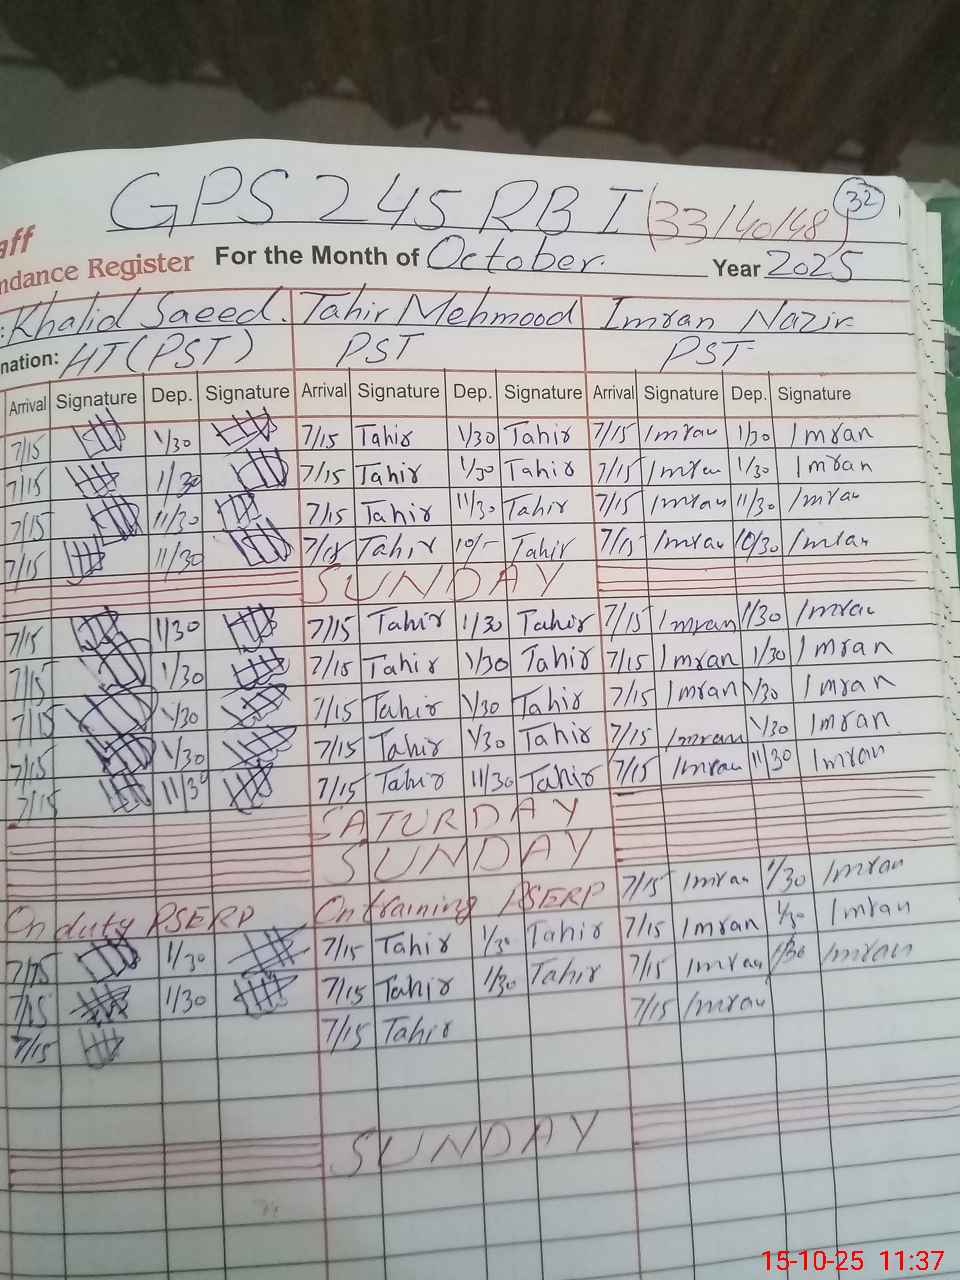 GPS 245 RB I (33140148) 32
aff
ndance Register For the Month of October. Year 2025
: Khalid Saeed. Tahir Mehmood Imran Nazir
nation: HT (PST) PST PST
Arrival Signature Dep. Signature Arrival Signature Dep. Signature Arrival Signature Dep. Signature
7/15 1/30 7/15 Tahir 1/30 Tahir 7/15 Imran 1/30 Imran
7/15 1/30 7/15 Tahir 1/30 Tahir 7/15 Imran 1/30 Imran
7/15 11/30 7/15 Tahir 11/30 Tahir 7/15 Imran 11/30 Imran
7/15 11/30 7/15 Tahir 10/- Tahir 7/15 Imran 10/30 Imran
SUNDAY
7/15 1/30 7/15 Tahir 1/30 Tahir 7/15 Imran 1/30 Imran
7/15 1/30 7/15 Tahir 1/30 Tahir 7/15 Imran 1/30 Imran
7/15 1/30 7/15 Tahir 1/30 Tahir 7/15 Imran 1/30 Imran
7/15 1/30 7/15 Tahir 1/30 Tahir 7/15 Imran 1/30 Imran
7/15 11/30 7/15 Tahir 11/30 Tahir 7/15 Imran 11/30 Imran
SATURDAY
SUNDAY
On duty PSERP On training PSERP 7/15 Imran 1/30 Imran
7/15 1/30 7/15 Tahir 1/30 Tahir 7/15 Imran 1/30 Imran
7/15 1/30 7/15 Tahir 1/30 Tahir 7/15 Imran 1/30 Imran
7/15 7/15 Tahir 7/15 Imran
SUNDAY
15-10-25 11:37